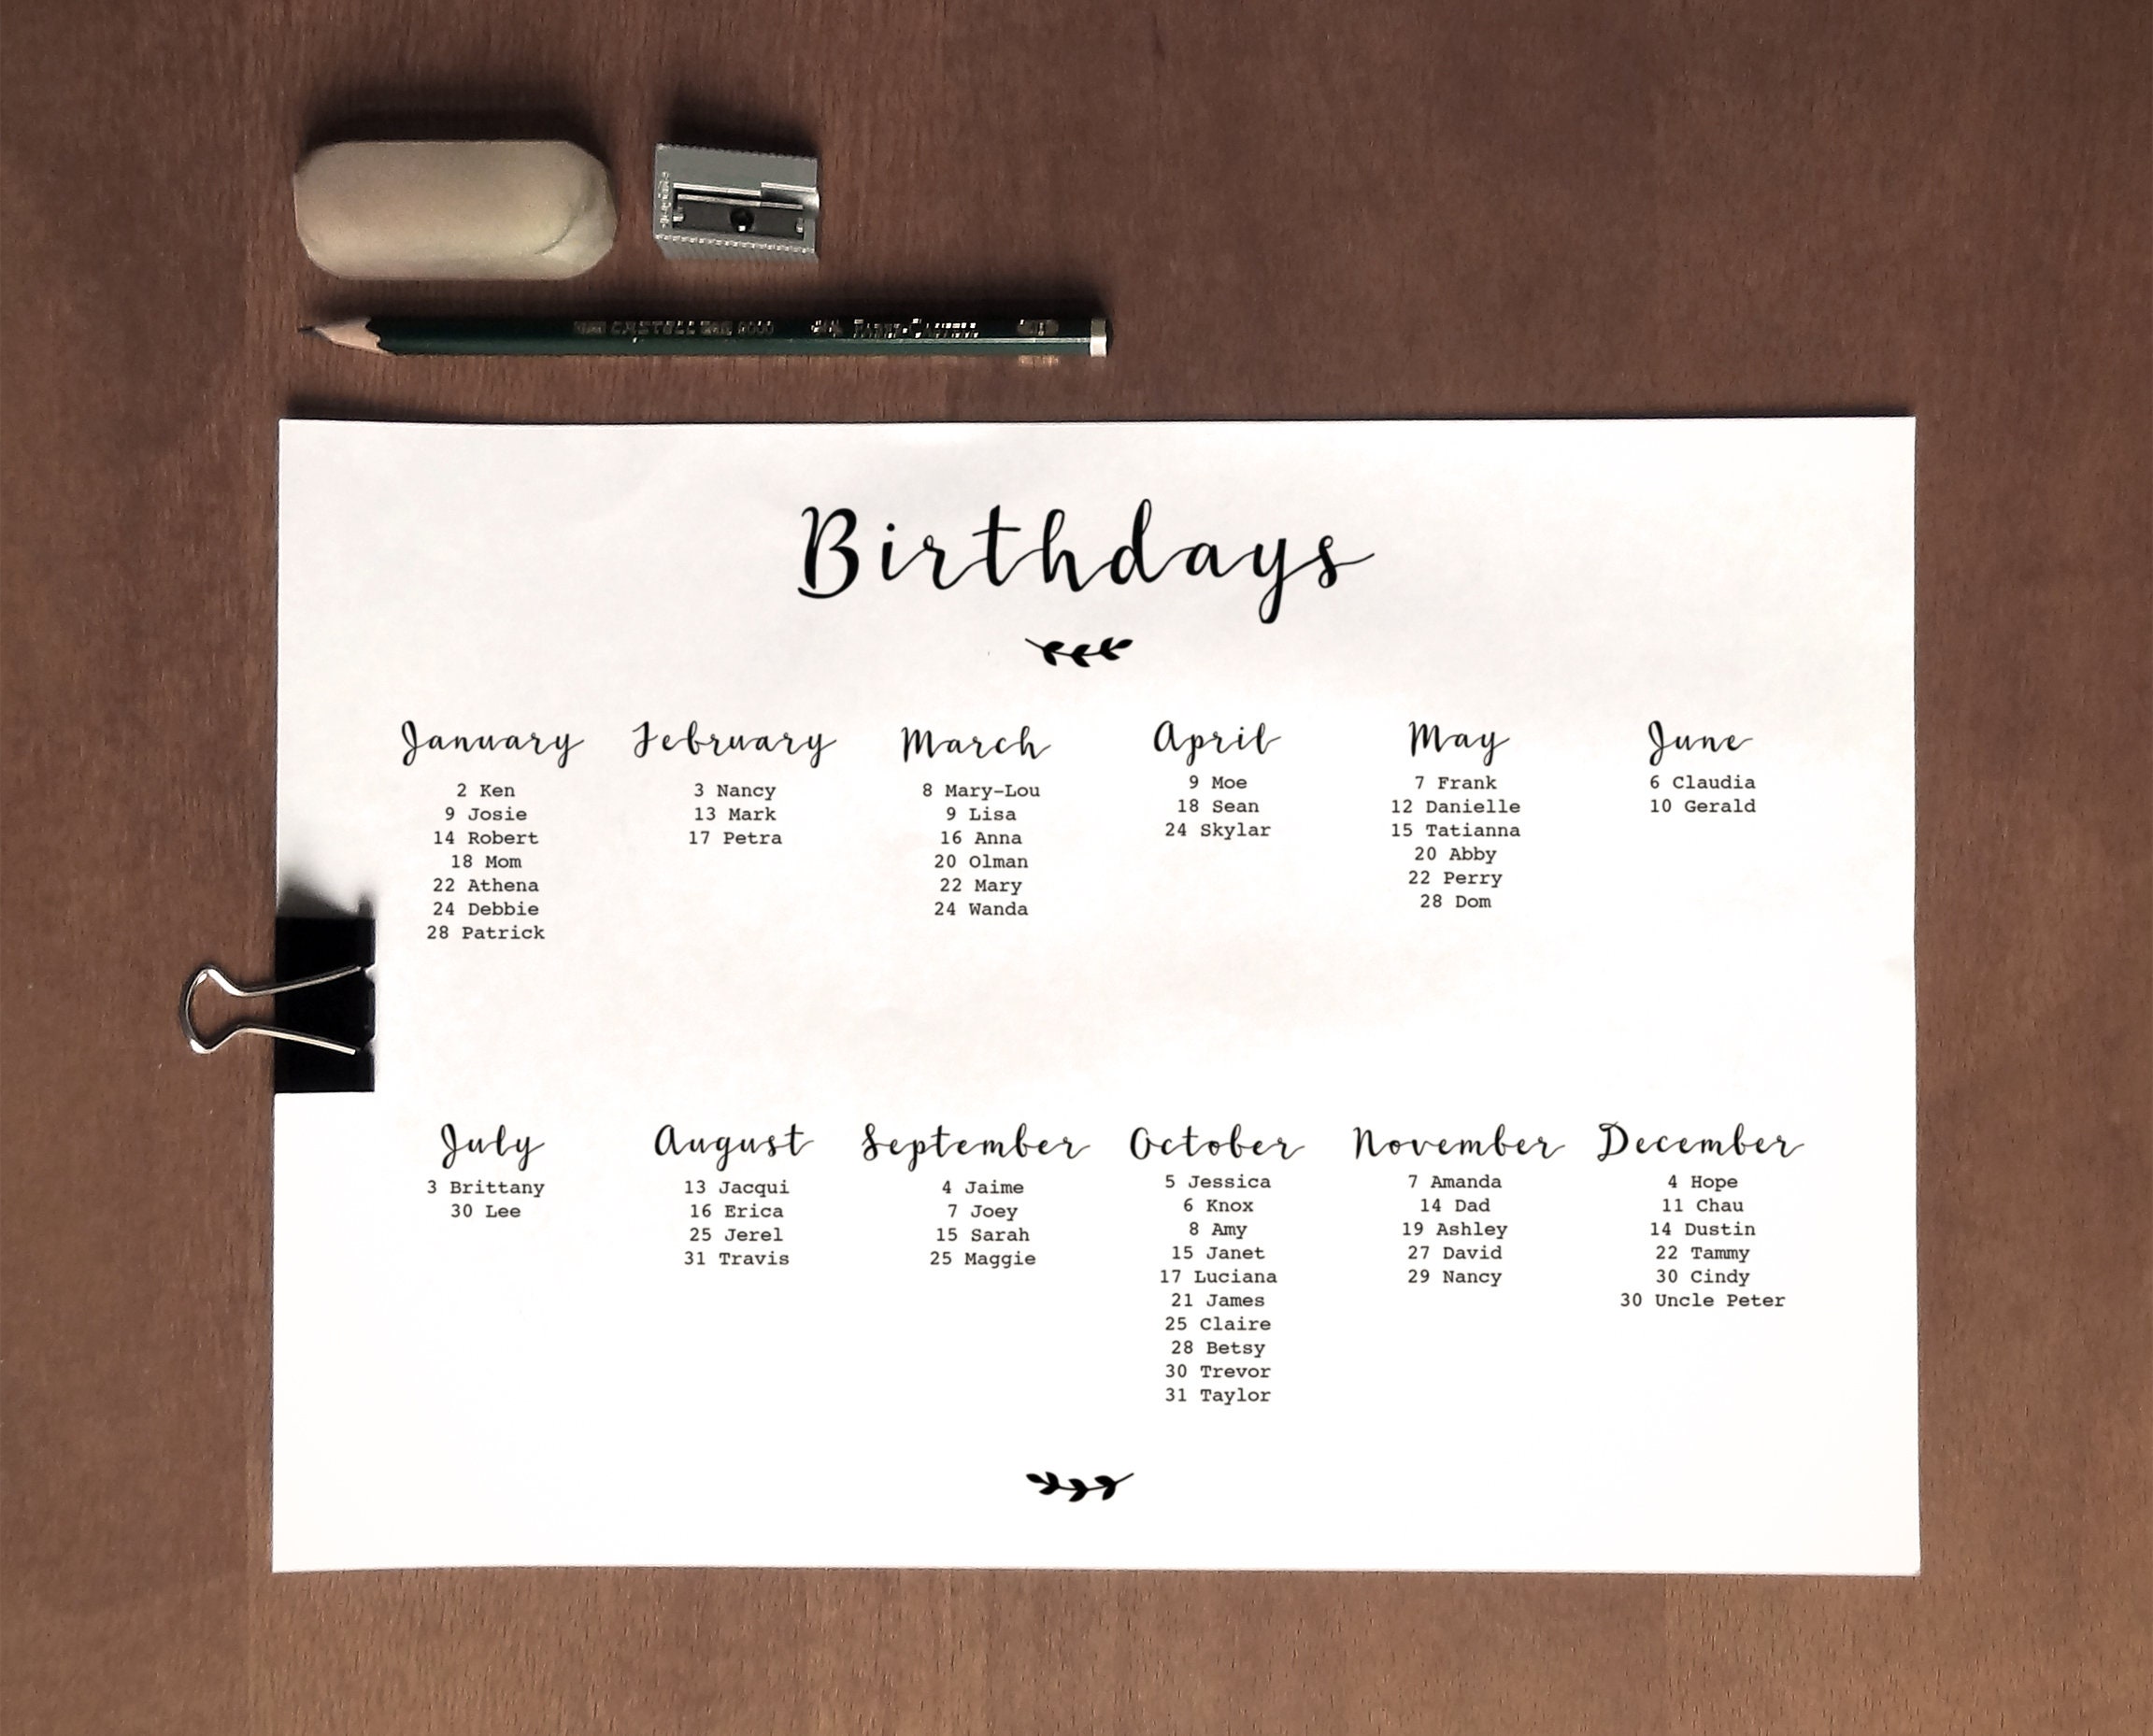 CASTELL 9000 Faber-Castell
Birthdays
January
2 Ken
9 Josie
14 Robert
18 Mom
22 Athena
24 Debbie
28 Patrick
February
3 Nancy
13 Mark
17 Petra
March
8 Mary-Lou
9 Lisa
16 Anna
20 Olman
22 Mary
24 Wanda
April
9 Moe
18 Sean
24 Skylar
May
7 Frank
12 Danielle
15 Tatianna
20 Abby
22 Perry
28 Dom
June
6 Claudia
10 Gerald
July
3 Brittany
30 Lee
August
13 Jacqui
16 Erica
25 Jerel
31 Travis
September
4 Jaime
7 Joey
15 Sarah
25 Maggie
October
5 Jessica
6 Knox
8 Amy
15 Janet
17 Luciana
21 James
25 Claire
28 Betsy
30 Trevor
31 Taylor
November
7 Amanda
14 Dad
19 Ashley
27 David
29 Nancy
December
4 Hope
11 Chau
14 Dustin
22 Tammy
30 Cindy
30 Uncle Peter